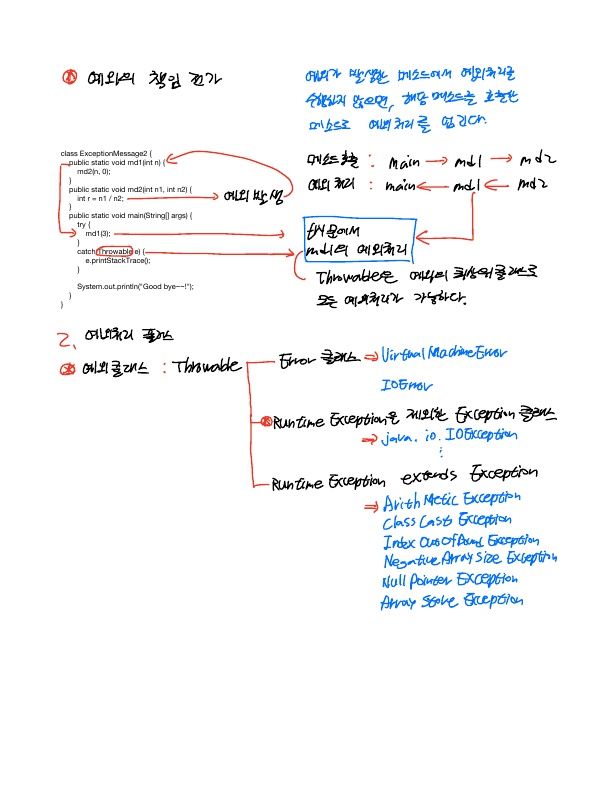 예외의 책임 전가
예외가 발생한 메소드에서 예외처리를
수행하지 않으면, 해당 메소드를 호출한
메소드로 예외처리를 넘긴다.
class ExceptionMessage2 {
public static void md1(int n) {
md2(n, 0);
}
public static void md2(int n1, int n2) {
int r = n1 / n2;
}
public static void main(String[] args) {
try {
md1(3);
}
catch(Throwable e) {
e.printStackTrace();
}
System.out.println("Good bye~~!");
}
}
예외 발생
메소드호출 : main → md1 → md2
예외 처리 : main ← md1 ← md2
try문에서
md1의 예외처리
Throwable은 예외의 최상위클래스로
모든 예외처리가 가능하다.
2. 예외처리 클래스
예외클래스 : Throwable
Error 클래스 ⇒ Virtual MachineError
IOError
Runtime Exception을 제외한 Exception 클래스
⇒ java.io.IOException
⋮
Runtime Exception extends Exception
⇒ Arith Metic Exception
Class Casts Exception
Index Out Of Bound Exception
Negative Array Size Exception
Null Pointer Exception
Array Store Exception